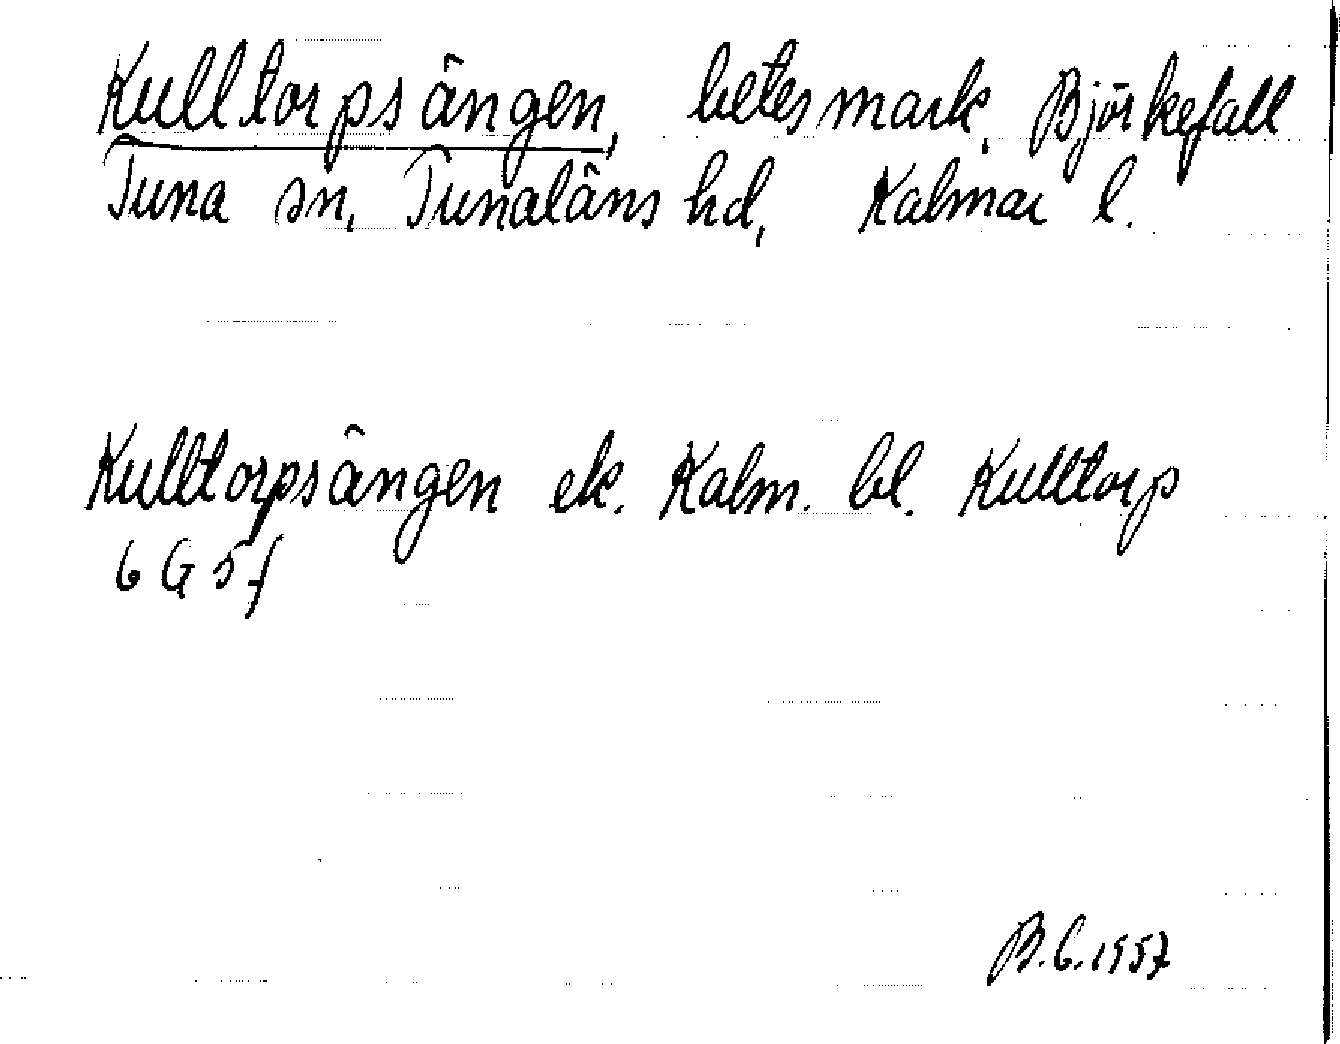 Kulltorpsängen, betesmark, Björkefall
Tuna sn, Tunaläns hd, Kalmar l.
Kulltorpsängen ek. Kalm. bl. Kulltorp
6 G 5 f
B.G. 1957